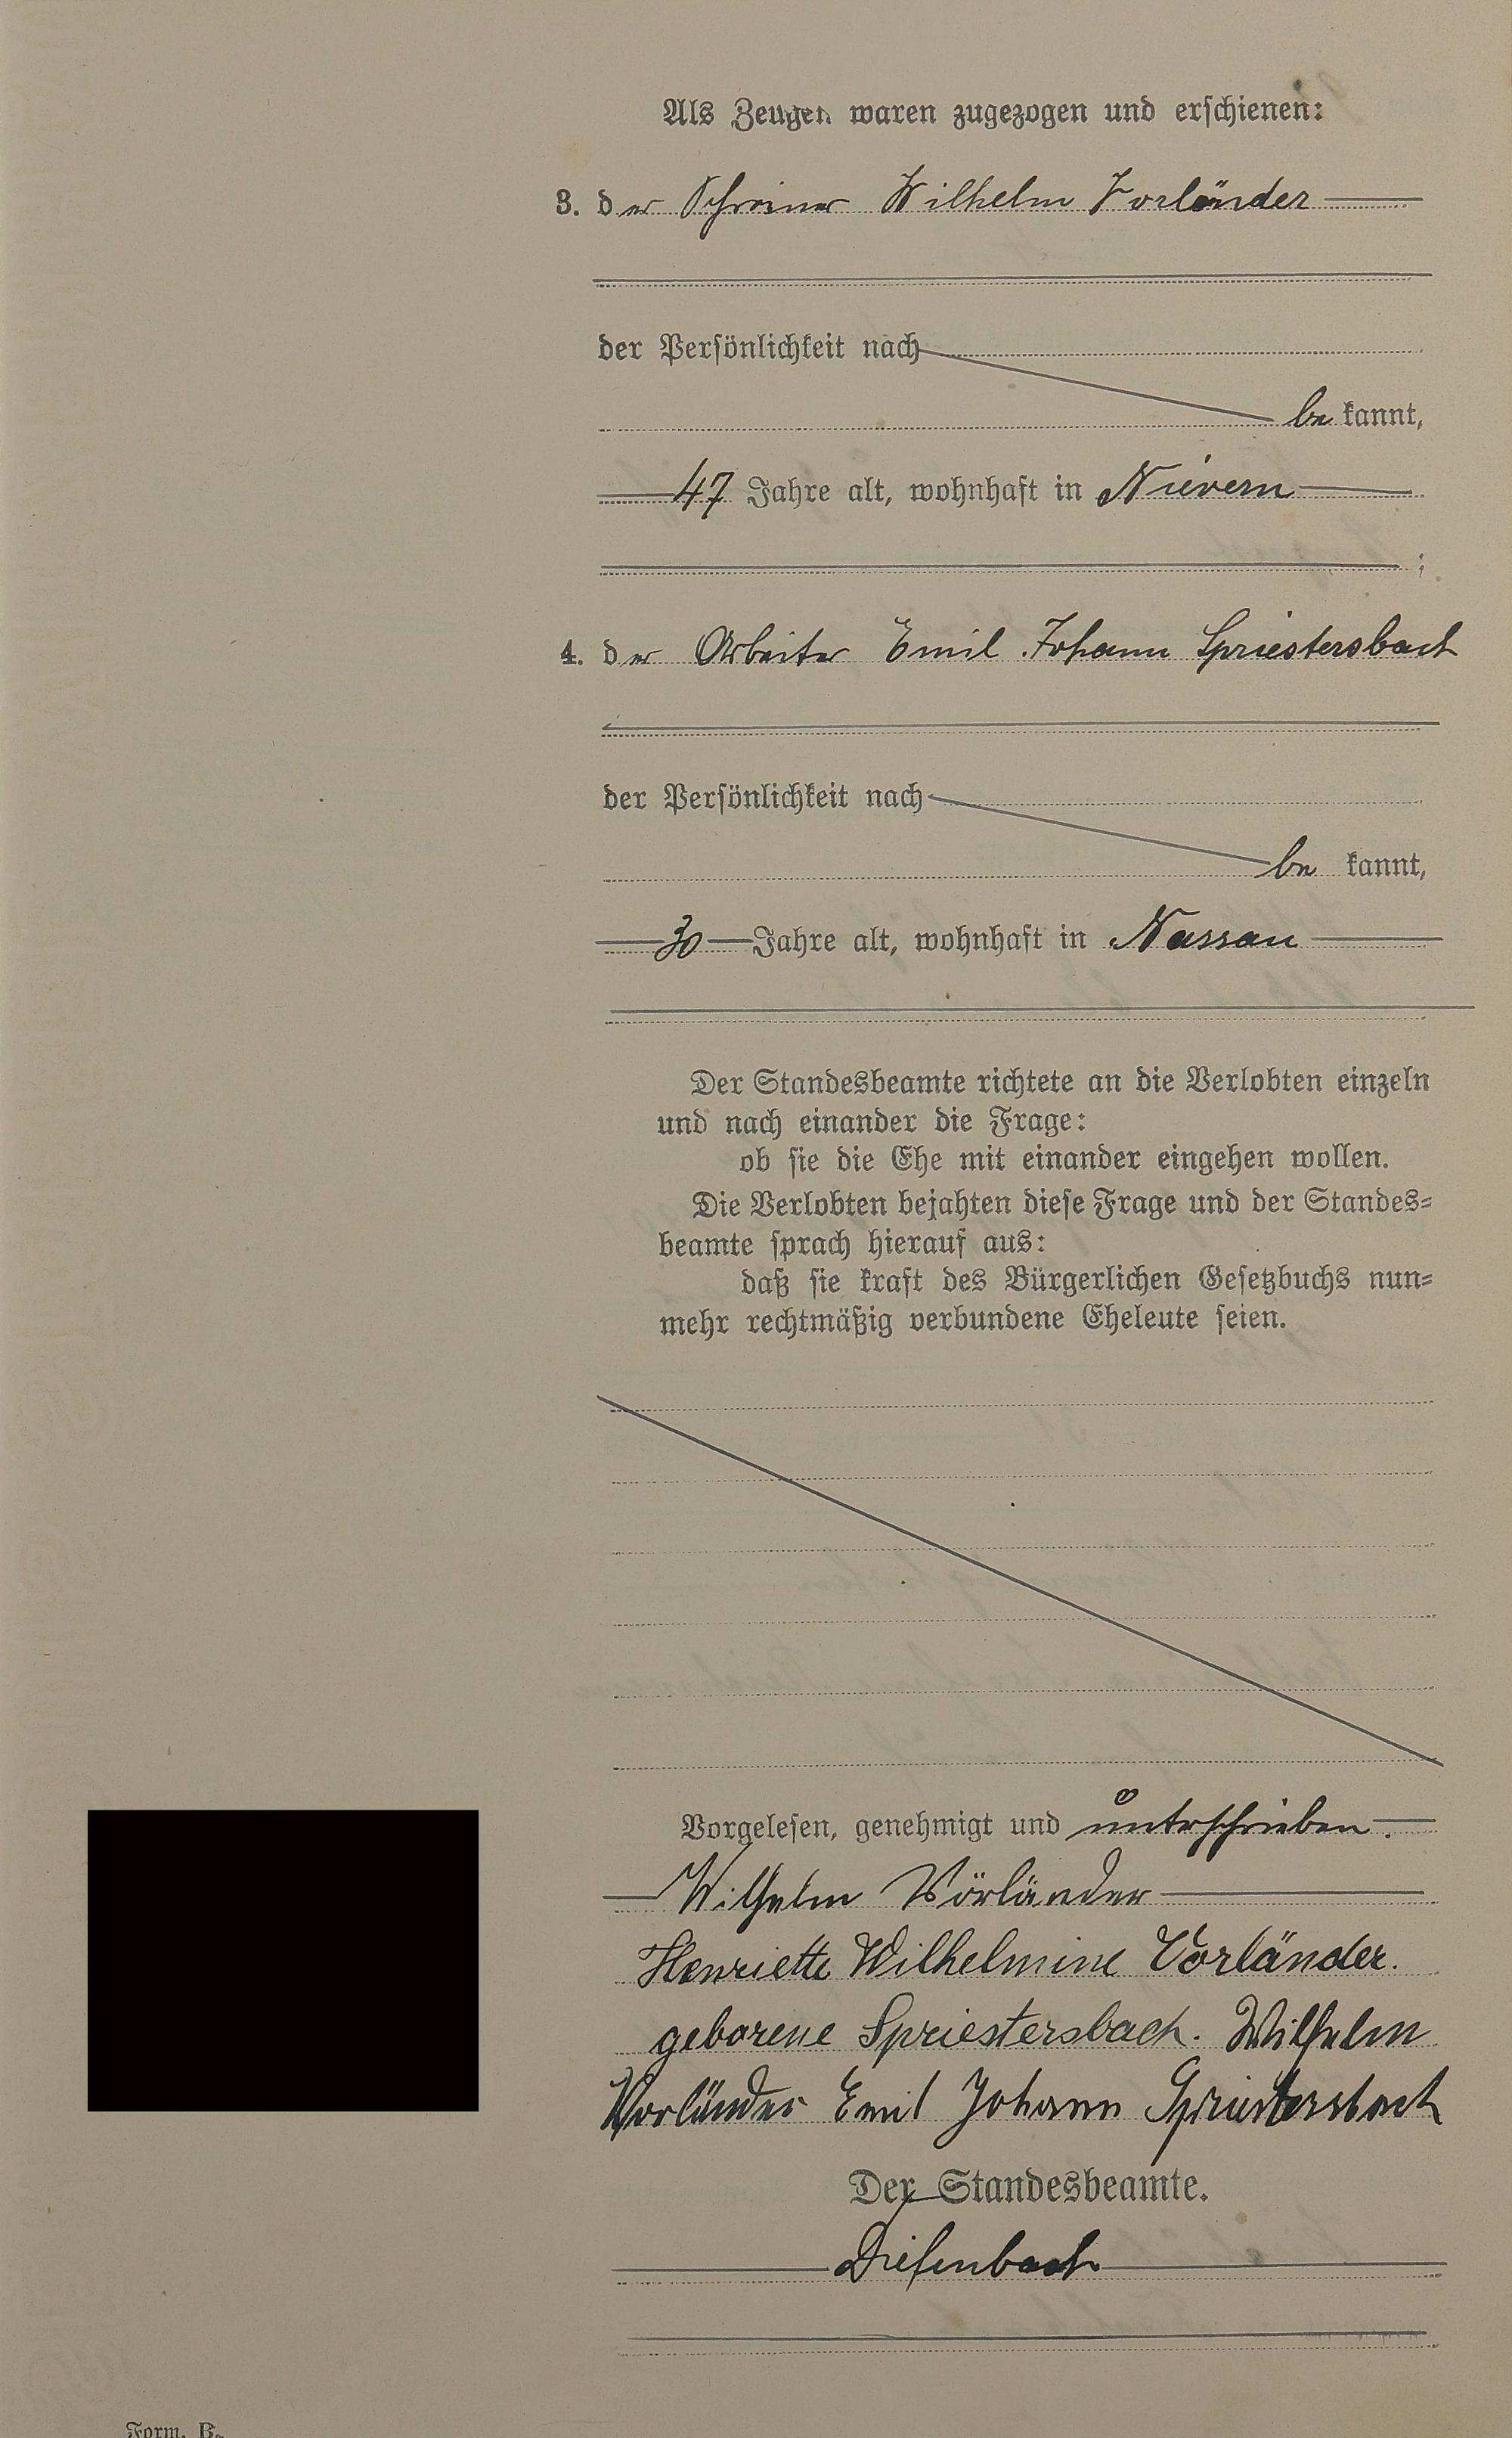 Als Zeugen waren zugezogen und erschienen:
3. der Schreiner Wilhelm Vorländer
der Persönlichkeit nach
bekannt,
47 Jahre alt, wohnhaft in Nievern
;
4. der Arbeiter Emil Johann Spriestersbach
der Persönlichkeit nach
be kannt,
30 Jahre alt, wohnhaft in Nassau
Der Standesbeamte richtete an die Verlobten einzeln
und nach einander die Frage:
ob sie die Ehe mit einander eingehen wollen.
Die Verlobten bejahten diese Frage und der Standes-
beamte sprach hierauf aus:
daß sie kraft des Bürgerlichen Gesetzbuchs nun-
mehr rechtmäßig verbundene Eheleute seien.
Vorgelesen, genehmigt und unterschrieben.
Wilhelm Vörländer
Henriette Wilhelmine Vorländer.
geborene Spriestersbach. Wilhelm
Vorländer Emil Johann Spriestersbach
Der Standesbeamte.
Diefenbach
Form. B.